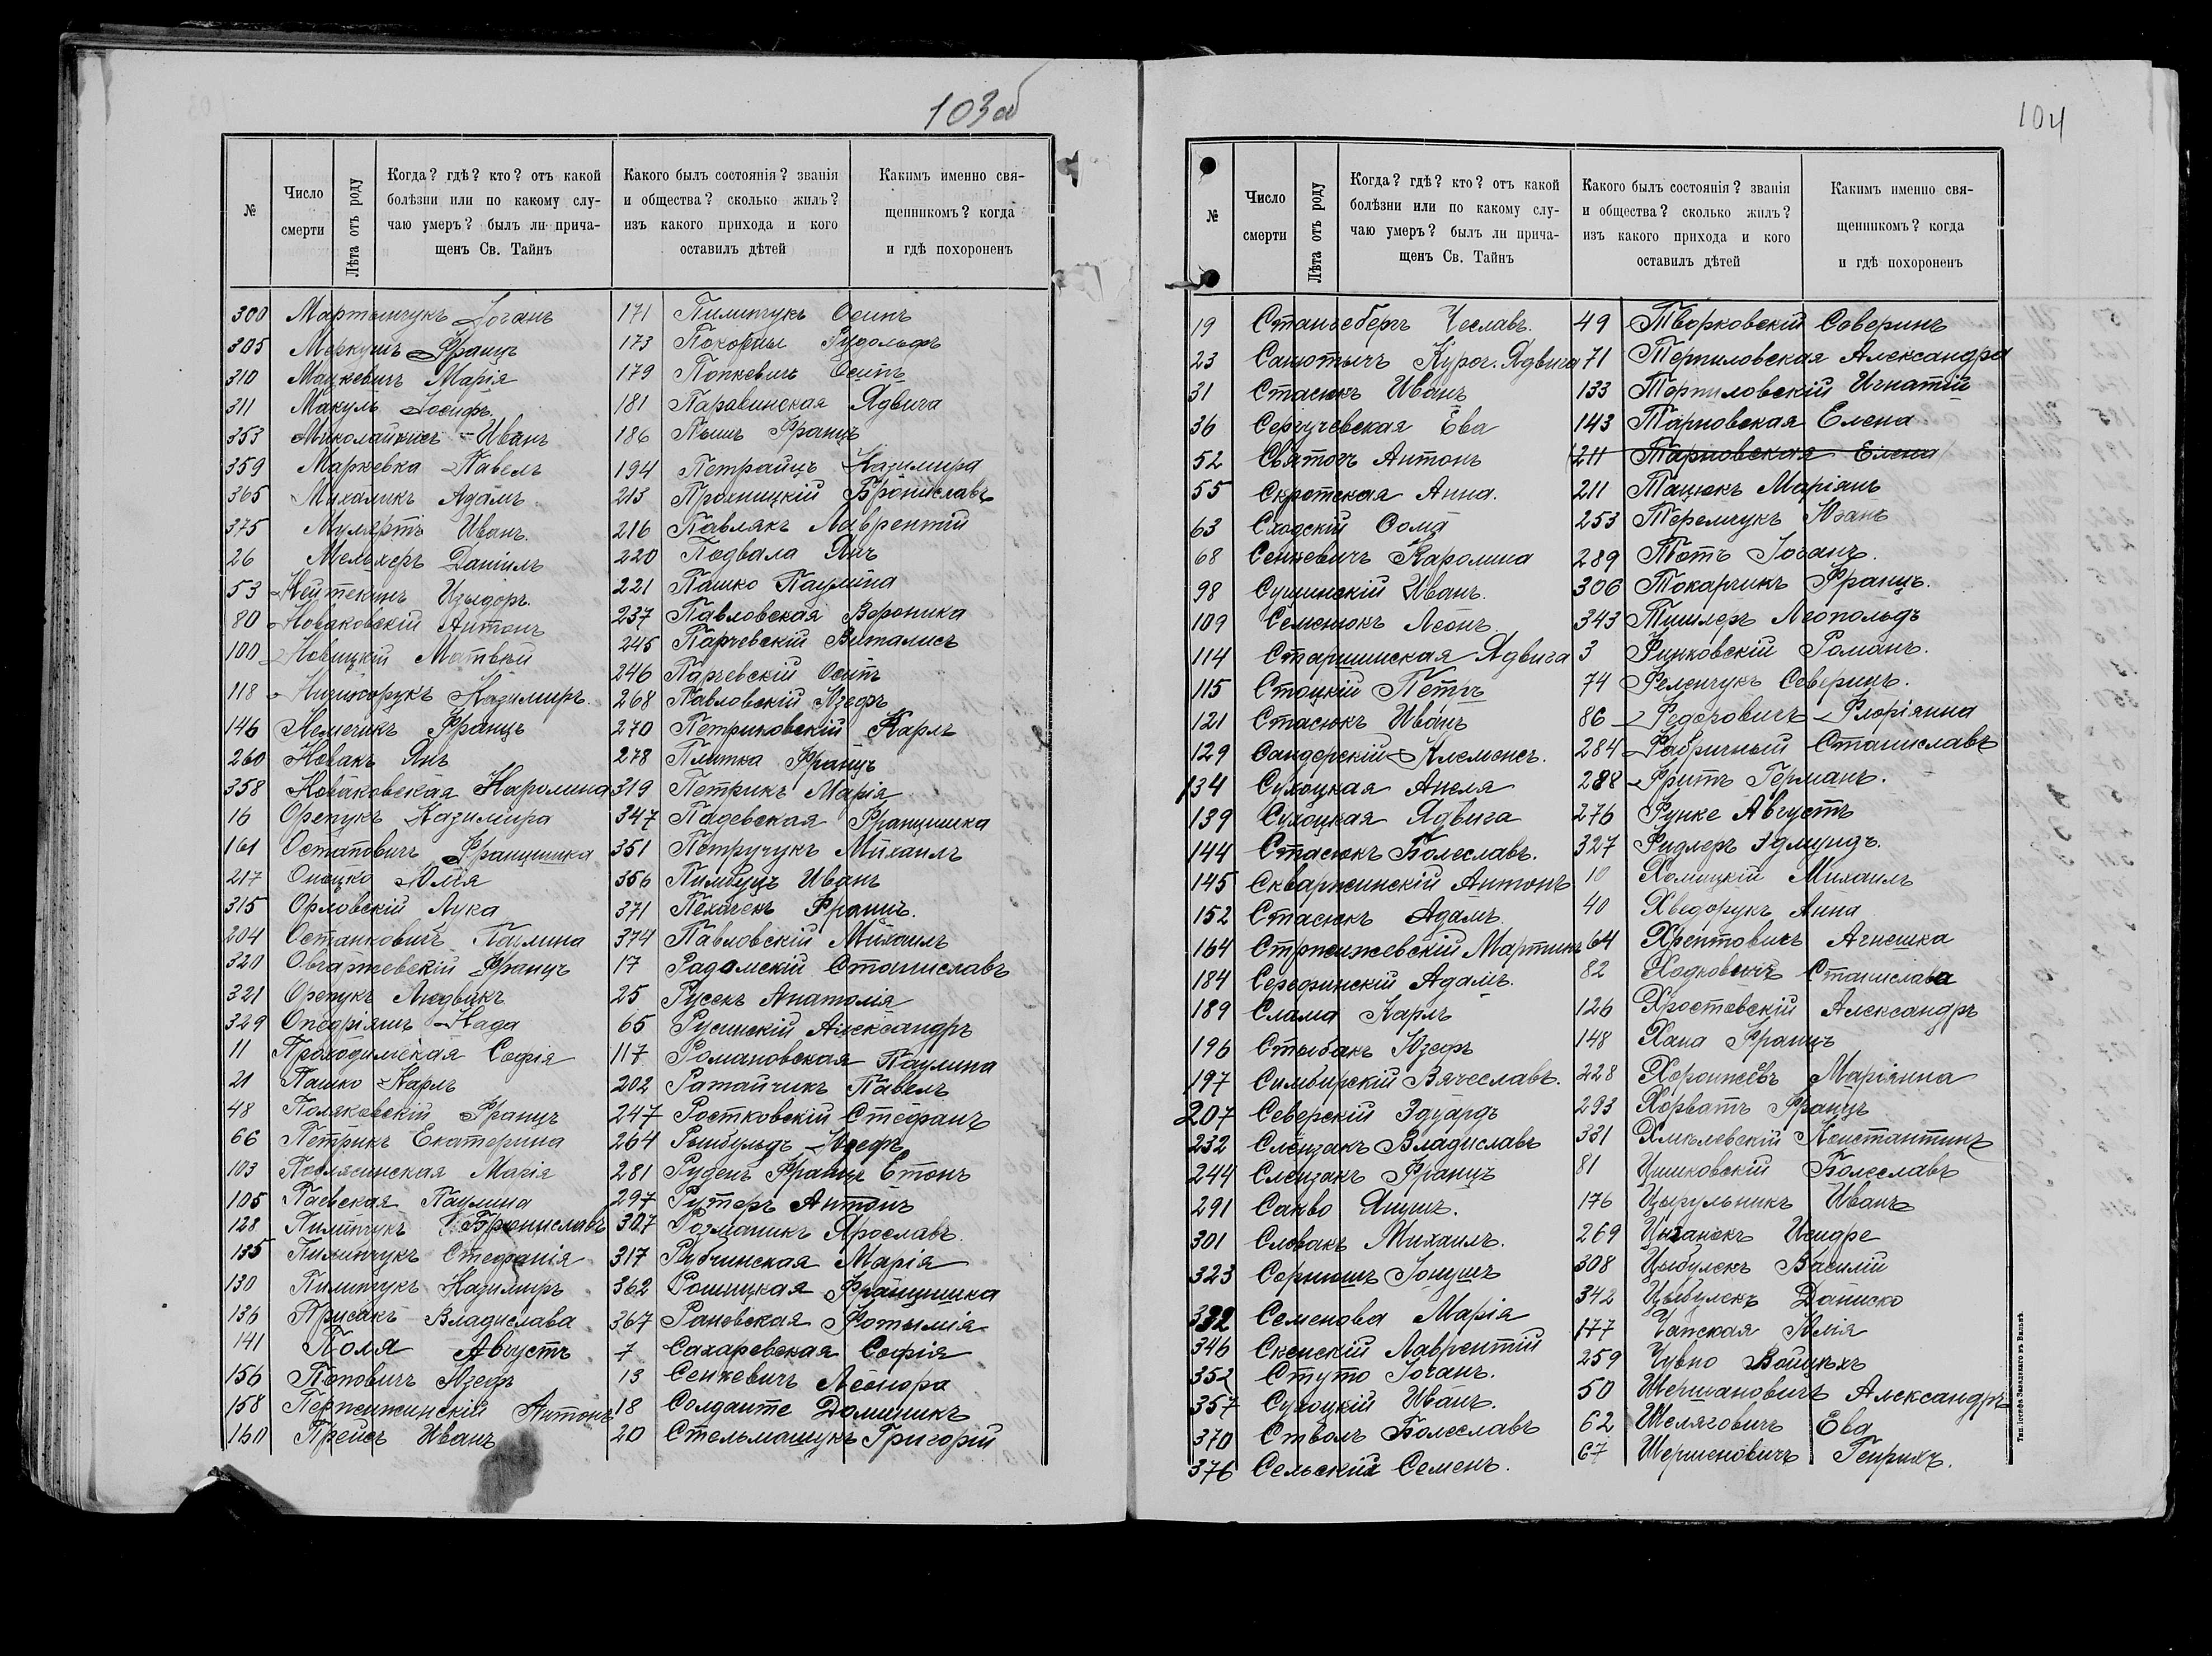 103об
№
Число смерти
Лѣта отъ роду
Когда? гдѣ? кто? отъ какой болѣзни или по какому случаю умеръ? былъ ли причащенъ Св. Тайнъ
Какого былъ состоянія? званія и общества? сколько жилъ? изъ какого прихода и кого оставилъ дѣтей
Какимъ именно священникомъ? когда и гдѣ похороненъ
300 Мартынчукъ Іоганъ
305 Меркушъ Францъ
310 Мацкевичъ Марія
311 Макуль Іосифъ
353 Миколайтисъ Иванъ
359 Маржевка Павелъ
365 Михаликъ Адамъ
375 Мулартъ Иванъ
26 Мельхеръ Даніилъ
53 Изыдоръ
80 Новаковскій Антонъ
100 Новицкій Матвѣй
118 Казимиръ
146 Немечикъ Францъ
260 Новакъ Янъ
358 Новаковская Каролина
16 Орепукъ Казимира
161 Остаповичъ Францишка
217 Юлія
315 Орловскій Лука
204 Останковичъ Паулина
320 Овчаржевскій Францъ
321 Орепукъ Людвикъ
329
11 Проходимская Софія
21 Пашко Карлъ
48 Поляковскій Францъ
66 Петрикъ Екатерина
103 Марія
105 Паевская Паулина
128 Пилипчукъ Брониславъ
135 Пилипчукъ Стефанія
130 Пилипчукъ Казимиръ
136 Присакъ Владислава
141 Поля Августъ
156 Поповичъ Юзефъ
158 Пержижинскій Антонъ
160 Прейсъ Иванъ
171 Пилипчукъ Осипъ
173 Покорны Рудольфъ
179 Попкевичъ Осипъ
181 Паравинская Ядвига
186 Пышъ Францъ
194 Петрайцъ Казимира
213 Прохницкій Брониславъ
216 Павлякъ Лаврентій
220 Подвала Янъ
221 Пашко Паулина
237 Павловская Вероника
245 Парчевскій Виталисъ
246 Парчевскій Осипъ
268 Павловскій Юзефъ
270 Петриковскій Карлъ
278 Плитка Францъ
319 Петрикъ Марія
347 Падевская Францишка
351 Петручукъ Михаилъ
356 Пимбуцъ Иванъ
371 Пехачекъ Францъ.
374 Павловскій Михаилъ
17 Радомскій Станиславъ
25 Русекъ Анатолія
65 Русинскій Александръ
117 Романовская Паулина
202 Ратайчикъ Павелъ
247 Ростковскій Стефанъ
264 Рымбульдъ Юзефъ
281 Рудень Францъ Етонъ
297 Рутеръ Антонъ
307 Розманикъ Ярославъ.
317 Рубчинская Марія
362 Рошицкая Францишка
367 Раневская Фотылія
7 Сахаревская Софія
13 Сенкевичъ Леонора
18 Солданте Доминикъ
20 Стельмащукъ Григорій
104
№
Число смерти
Лѣта отъ роду
Когда? гдѣ? кто? отъ какой болѣзни или по какому случаю умеръ? былъ ли причащенъ Св. Тайнъ
Какого былъ состоянія? званія и общества? сколько жилъ? изъ какого прихода и кого оставилъ дѣтей
Какимъ именно священникомъ? когда и гдѣ похороненъ
19 Стангебергъ Чеславъ.
23 Ядвига
31 Стасюкъ Иванъ
36 Сергучевская Ева
52 Святочъ Антонъ
55 Скротская Анна.
63 Сходскій Ѳома
68 Сенкевичъ Каролина
98 Сушинскій Иванъ.
109 Семенюкъ Леонъ
114 Старшинская Ядвига
115 Стоцкій Петръ
121 Стасюкъ Иванъ
129 Сандорскій Клеменсъ.
134 Сухоцкая Анеля
139 Сухоцкая Ядвига
144 Стасюкъ Болеславъ.
145 Скваржинскій Антонъ
152 Стасюкъ Адамъ.
164 Стржижевскій Мартинъ
184 Серафинскій Адамъ.
189 Слама Карлъ
196 Стыбакъ Юзефъ
197 Симбирскій Вячеславъ.
207 Северскій Эдуардъ
232 Слензакъ Владиславъ
244 Слензакъ Францъ
291 Санво Янушъ.
301 Словакъ Михаилъ.
323 Сорнишъ Іонушъ
332 Семенова Марія
346 Скенскій Лаврентій
352 Стуто Іоганъ.
357 Сухоцкій Иванъ.
370 Стволъ Болеславъ
376 Сельскихъ Семенъ.
49 Творковскій Соверинъ
71 Терпиловская Александра
133 Терпиловскій Игнатій
143 Тарновская Елена
211 Тарновская Елена
211 Тацюкъ Маріянъ
253 Теремчукъ Юзанъ
289 Тотъ Іоганъ.
306 Токарчикъ Францъ.
343 Тишлеръ Леопольдъ
3 Фицковскій Романъ.
74 Феленчукъ Северинъ.
86 Федоровичъ Флоріянна
284 Фабричный Станиславъ
288 Фритъ Германъ.
276 Функе Августъ
327 Фидлеръ Эдмундъ.
10 Хомицкій Михаилъ
40 Хведорукъ Анна
64 Хрептовичъ Агнешка
82 Ходковскій Станислава
126 Хростовскій Александръ
148 Хана Францъ
228 Маріянна
293 Хорватъ Францъ
331 Хмѣлевскій Константинъ
81 Цишковскій Болеславъ
176 Цырульникъ Иванъ
269 Цыганекъ Исидре
308 Цыбулекъ Василій
342 Цыбулекъ Даниско
177 Чапская Юлія
259 Чувпо Войцѣхъ
50 Шершановичъ Александръ
62 Шеляговичъ Ева
67 Шершеновичъ Генрихъ.
Тип. Іосифа Завадзкаго въ Вильнѣ.